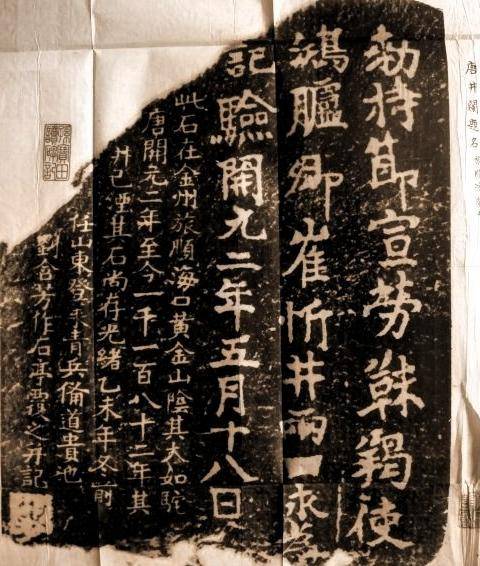 唐井闌題名
勑持節宣勞靺羯使
鴻臚卿崔忻井兩口永爲
記驗開元二年五月十八日
此石在金州旅順海口黃金山陰其大如駝
唐開元二年至今一千一百八十二年其
井已湮其石尚存光緒乙未年冬前
任山東登萊青兵備道貴池
劉含芳作石亭覆之并記